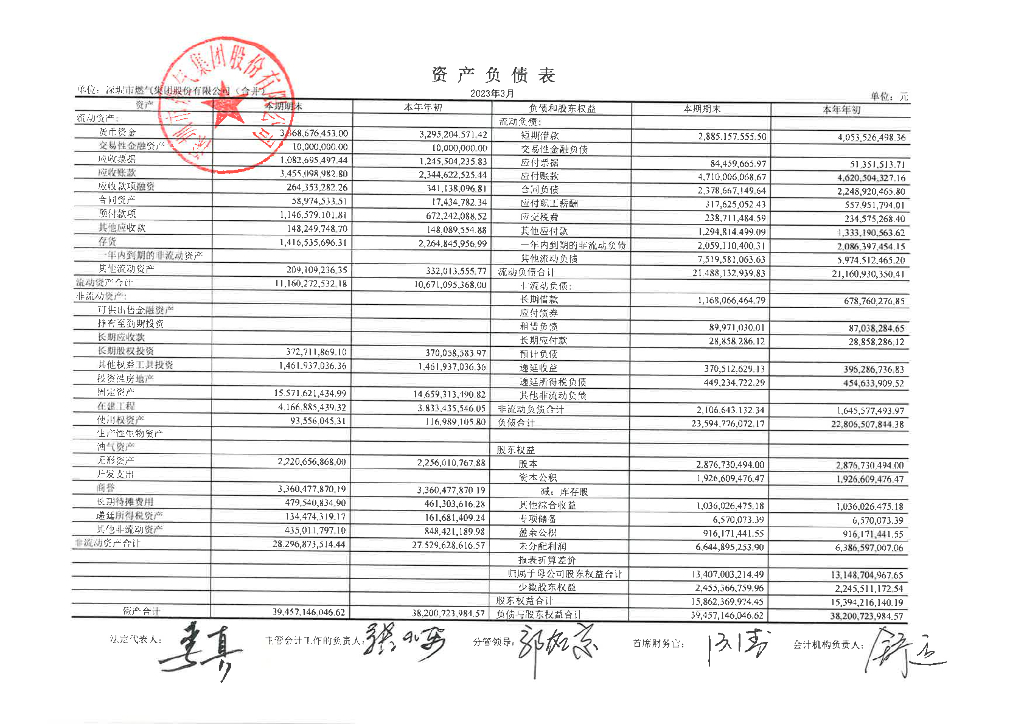 资产负债表
2023年3月
单位：深圳市燃气集团股份有限公司（合并） 单位：元
资产 本期期末 本年年初 负债和股东权益 本期期末 本年年初
流动资产： 流动负债：
货币资金 3,368,676,453.00 3,293,204,571.42 短期借款 2,885,157,555.50 4,053,526,498.36
交易性金融资产 10,000,000.00 10,000,000.00 交易性金融负债
应收票据 1,082,695,497.44 1,245,504,235.83 应付票据 84,459,665.97 51,351,513.71
应收账款 3,455,098,982.80 2,344,622,525.44 应付账款 4,710,006,068.67 4,620,504,327.16
应收款项融资 264,353,282.26 341,138,096.81 合同负债 2,378,667,149.64 2,248,920,465.80
合同资产 58,974,533.51 17,434,782.34 应付职工薪酬 317,625,052.43 557,951,794.01
预付款项 1,146,579,101.81 672,242,088.52 应交税费 238,711,484.59 234,575,268.40
其他应收款 148,249,748.70 148,089,554.88 其他应付款 1,294,814,499.09 1,333,190,563.62
存货 1,416,535,696.31 2,264,845,956.99 一年内到期的非流动负债 2,059,110,400.31 2,086,397,454.15
一年内到期的非流动资产 其他流动负债 7,519,581,063.63 5,974,512,465.20
其他流动资产 209,109,236.35 332,013,555.77 流动负债合计 21,488,132,939.83 21,160,930,350.41
流动资产合计 11,160,272,532.18 10,671,095,368.00 非流动负债：
非流动资产： 长期借款 1,168,066,464.79 678,760,276.85
可供出售金融资产 应付债券
持有至到期投资 租赁负债 89,971,030.01 87,038,284.65
长期应收款 长期应付款 28,858,286.12 28,858,286.12
长期股权投资 372,711,869.10 370,058,583.97 预计负债
其他权益工具投资 1,461,937,036.36 1,461,937,036.36 递延收益 370,512,629.13 396,286,736.83
投资性房地产 递延所得税负债 449,234,722.29 454,633,909.52
固定资产 15,571,621,434.99 14,659,313,490.82 其他非流动负债
在建工程 4,166,885,439.32 3,833,435,546.05 非流动负债合计 2,106,643,132.34 1,645,577,493.97
使用权资产 93,556,045.31 116,989,105.80 负债合计 23,594,776,072.17 22,806,507,844.38
生产性生物资产
油气资产 股东权益
无形资产 2,220,656,868.00 2,256,010,767.88 股本 2,876,730,494.00 2,876,730,494.00
开发支出 资本公积 1,926,609,476.47 1,926,609,476.47
商誉 3,360,477,870.19 3,360,477,870.19 减：库存股
长期待摊费用 479,540,834.90 461,303,616.28 其他综合收益 1,036,026,475.18 1,036,026,475.18
递延所得税资产 134,474,319.17 161,681,409.24 专项储备 6,570,073.39 6,570,073.39
其他非流动资产 435,011,797.10 848,421,189.98 盈余公积 916,171,441.55 916,171,441.55
非流动资产合计 28,296,873,514.44 27,529,628,616.57 未分配利润 6,644,895,253.90 6,386,597,007.06
报表折算差价
归属于母公司股东权益合计 13,407,003,214.49 13,148,704,967.65
少数股东权益 2,455,366,759.96 2,245,511,172.54
股东权益合计 15,862,369,974.45 15,394,216,140.19
资产合计 39,457,146,046.62 38,200,723,984.57 负债与股东权益合计 39,457,146,046.62 38,200,723,984.57
法定代表人： 主管会计工作的负责人： 分管领导： 首席财务官： 会计机构负责人：